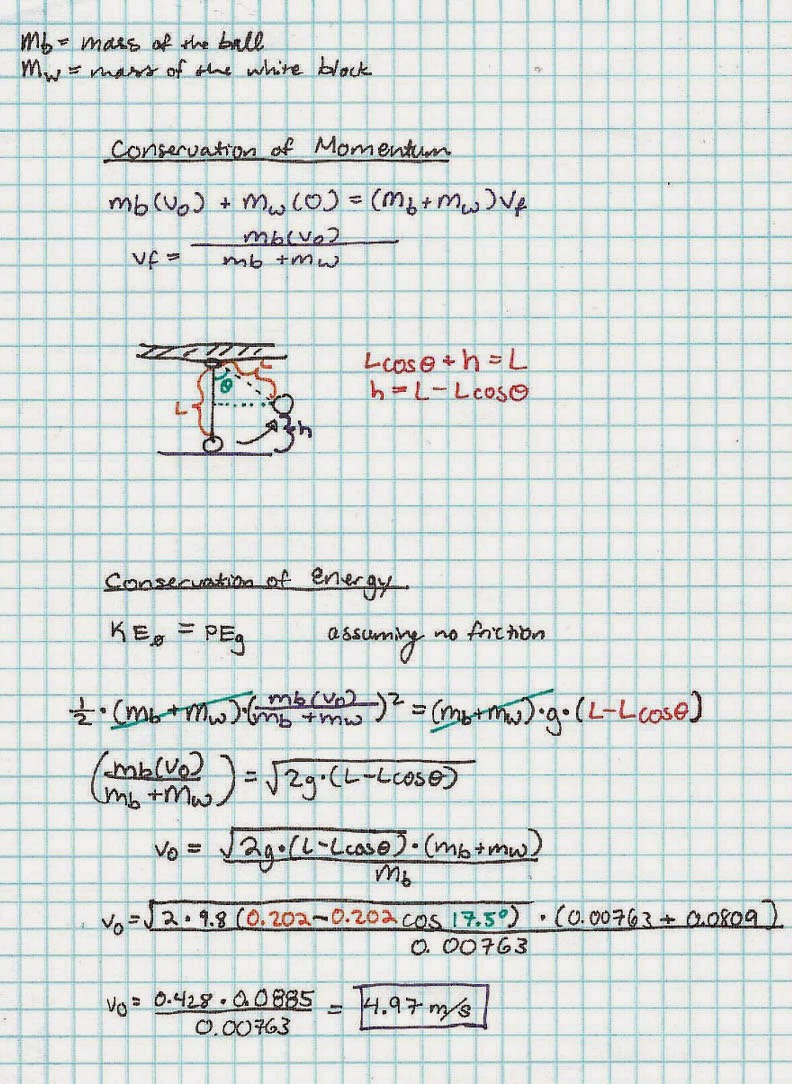 mb = mass of the ball
mw = mass of the white block
Conservation of Momentum
mb(v₀) + mw(0) = (mb+mw)vf
vf = mb(v₀) / mb + mw
Lcosθ + h = L
h = L - Lcosθ
θ
L
L
h
Conservation of Energy
KE₀ = PEg assuming no friction
1/2 · (mb+mw)·(mb(v₀) / mb + mw)² = (mb+mw)·g·(L-Lcosθ)
(mb(v₀) / mb + mw) = √2g·(L-Lcosθ)
v₀ = √2g·(L-Lcosθ) · (mb+mw) / mb
v₀ = √2·9.8(0.202-0.202cos 17.5°) · (0.00763 + 0.0809) / 0.00763
v₀ = 0.428 · 0.0885 / 0.00763 = 4.97 m/s